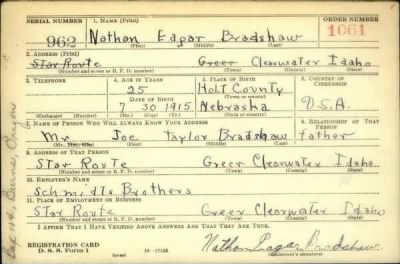 SERIAL NUMBER 1. NAME (Print) ORDER NUMBER
962 Nathan Edgar Bradshaw 1061
(First) (Middle) (Last)
2. ADDRESS (Print)
Star Route Greer Clearwater Idaho
(Number and street or R. F. D. number) (Town) (County) (State)
3. TELEPHONE 4. AGE IN YEARS 5. PLACE OF BIRTH 6. COUNTRY OF CITIZENSHIP
25 Holt County
DATE OF BIRTH (Town or county)
7 30 1915 Nebraska U.S.A.
(Exchange) (Number) (Mo.) (Day) (Yr.) (State or country)
7. NAME OF PERSON WHO WILL ALWAYS KNOW YOUR ADDRESS 8. RELATIONSHIP OF THAT PERSON
Mr. Joe Taylor Bradshaw father
(Mr., Mrs., Miss) (First) (Middle) (Last)
9. ADDRESS OF THAT PERSON
Star Route Greer Clearwater Idaho
(Number and street or R. F. D. number) (Town) (County) (State)
10. EMPLOYER'S NAME
Schmidts Brothers
11. PLACE OF EMPLOYMENT OR BUSINESS
Star Route Greer Clearwater Idaho
(Number and street or R. F. D. number) (Town) (County) (State)
I AFFIRM THAT I HAVE VERIFIED ABOVE ANSWERS AND THAT THEY ARE TRUE.
REGISTRATION CARD
D. S. S. Form 1 (over) Nathan Edgar Bradshaw
(Registrant's signature)
Box 114, Burns, Oregon